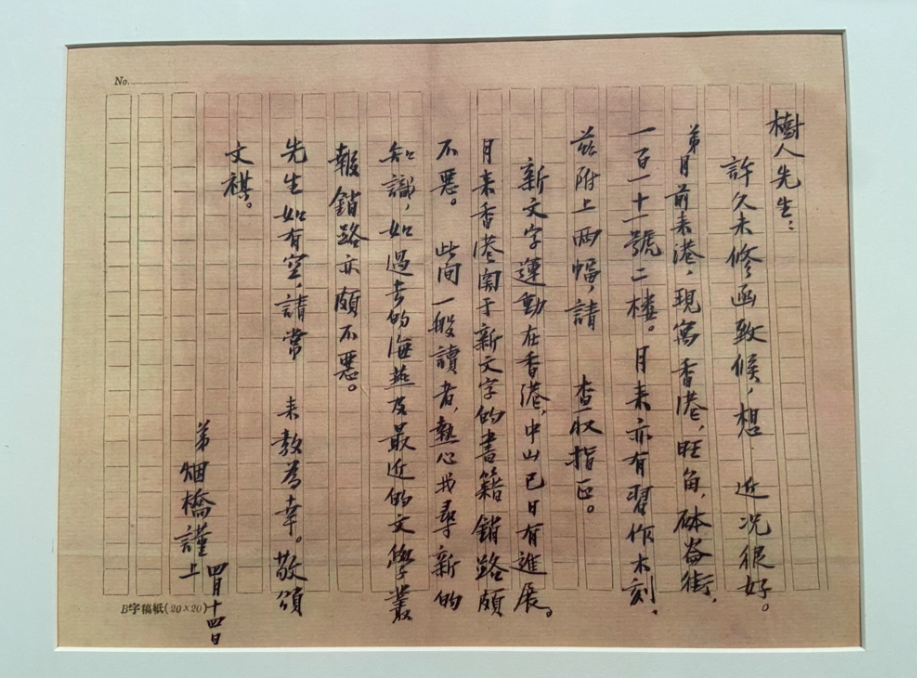 No.
樹人先生：
許久未修函致候，想 近况很好。
弟月前来港，現寓香港，旺角，砵崙街，
一百一十一號二楼。月来亦有習作木刻，
兹附上两幅，請 查收指正。
新文字運動在香港，中山已日有進展。
月来香港関于新文字的書籍銷路頗
不悪。此间一般讀者，熱心找尋新的
知識，如過去的海燕及最近的文學叢
報銷路亦頗不悪。
先生如有空，請常 来教為幸。敬頌
文祺。
弟烟橋謹上
四月十四日
B字稿紙(20×20)